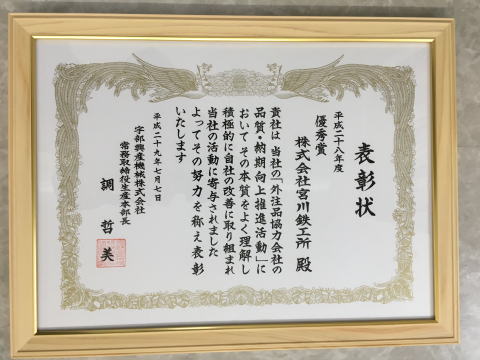 表彰状
平成二十八年度
優秀賞
株式会社宮川鉄工所 殿
貴社は 当社の「外注品協力会社の
品質・納期向上推進活動」に
おいて その本質をよく理解し
積極的に自社の改善に取り組まれ
当社の活動に寄与されました
よってその努力を称え表彰
いたします
平成二十九年七月七日
宇部興産機械株式会社
常務取締役生産本部長
調 哲美